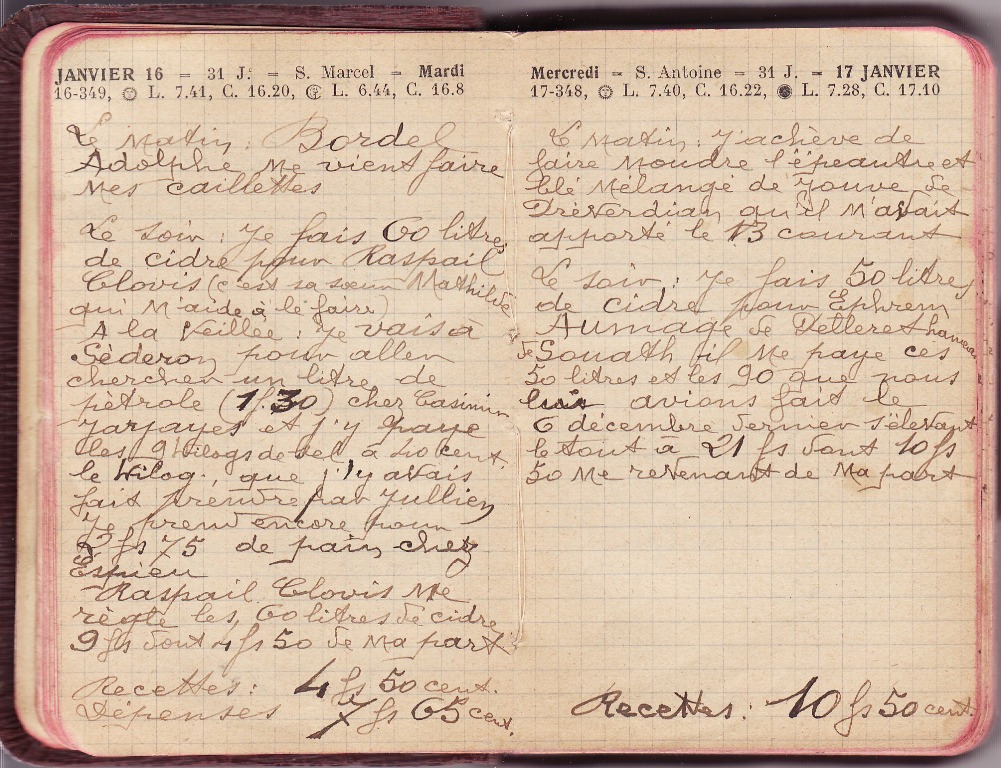 JANVIER 16 = 31 J. = S. Marcel = Mardi
16-349, L. 7.41, C. 16.20, L. 6.44, C. 16.8
Le matin : Bordel
Adolphe me vient faire
mes caillettes
Le soir : je fais 60 litres
de cidre pour Raspail
Clovis (c'est sa sœur Mathilde
qui m'aide à le faire)
A la veillée : je vais à
Séderon pour aller
chercher un litre de
pétrole (1f.30) chez Casimir
Jarjayes et j'y paye
les 9 kilogs de sel à 40 cent.
le kilog, que j'y avais
fait prendre par Jullien
Je prend encore pour
2 fs 75 de pain chez
Espieu
Raspail Clovis me
règle les 60 litres de cidre
9 fs dont 4 fs 50 de ma part
Recettes : 4 fs 50 cent.
Dépenses 7 fs 65 cent.
Mercredi = S. Antoine = 31 J. = 17 JANVIER
17-348, L. 7.40, C. 16.22, L. 7.28, C. 17.10
Le Matin : j'achève de
faire moudre l'épeautre et
blé mélangé de Jouve de
qu'il m'avait
apporté le 13 courant
Le soir : je fais 50 litres
de cidre pour Ephrem
Aumage de
de il me paye ces
50 litres et les 90 que nous
lui avions fait le
6 décembre dernier s'élevant
le tout à 21 fs dont 10 fs
50 me revenant de ma part
Recettes : 10 fs 50 cent.